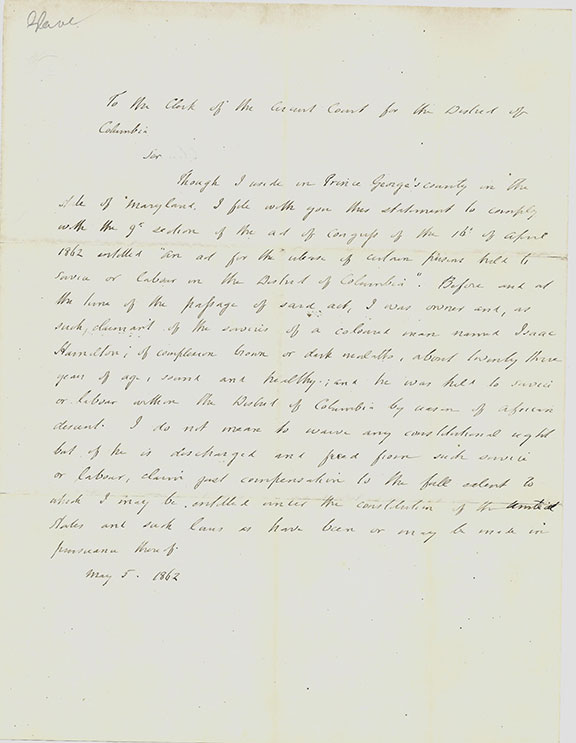 Slave
To the Clerk of the Circuit Court for the District of
Columbia
Sir
Though I reside in Prince George's county in the
state of Maryland, I file with you this statement to comply
with the 9th section of the act of Congress of the 16th of April
1862 entitled "an act for the release of certain persons held to
service or labour in the District of Columbia". Before and at
the time of the passage of said act, I was owner and, as
such, claimant of the services of a coloured man named Isaac
Hamilton; of complexion brown or dark mulatto, about twenty three
years of age, sound and healthy; and he was held to service
or labour within the District of Columbia by reason of african
descent. I do not meane to waive any constitutional right
but if he is discharged and freed from such service
or labour, claim just compensation to the full extent to
which I may be entitled under the constitution of the United
States and such laws as have been or may be made in
pursuance thereof.
May 5. 1862